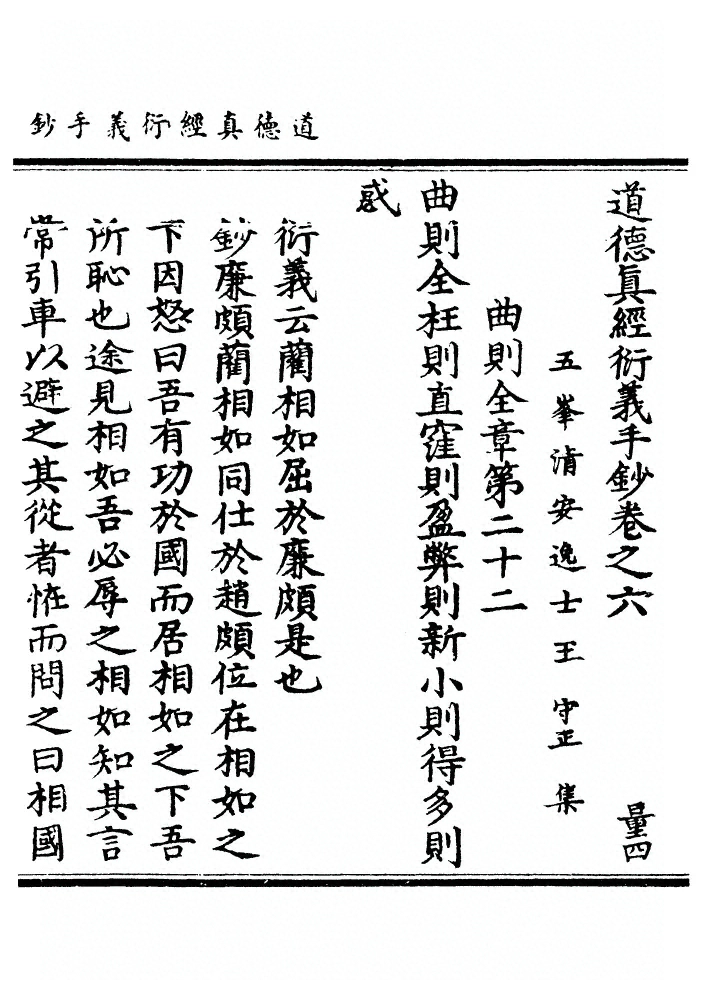 道德真經衍義手鈔
道德眞經衍義手鈔卷之六　量四
五峯清安逸士王守正集
曲則全章第二十二
曲則全枉則直窪則盈弊則新小則得多則
惑
衍義云藺相如屈於廉頗是也
鈔廉頗藺相如同仕於趙頗位在相如之
下因怒曰吾有功於國而居相如之下吾
所恥也途見相如吾必辱之相如知其言
常引車以避之其從者恠而問之曰相國